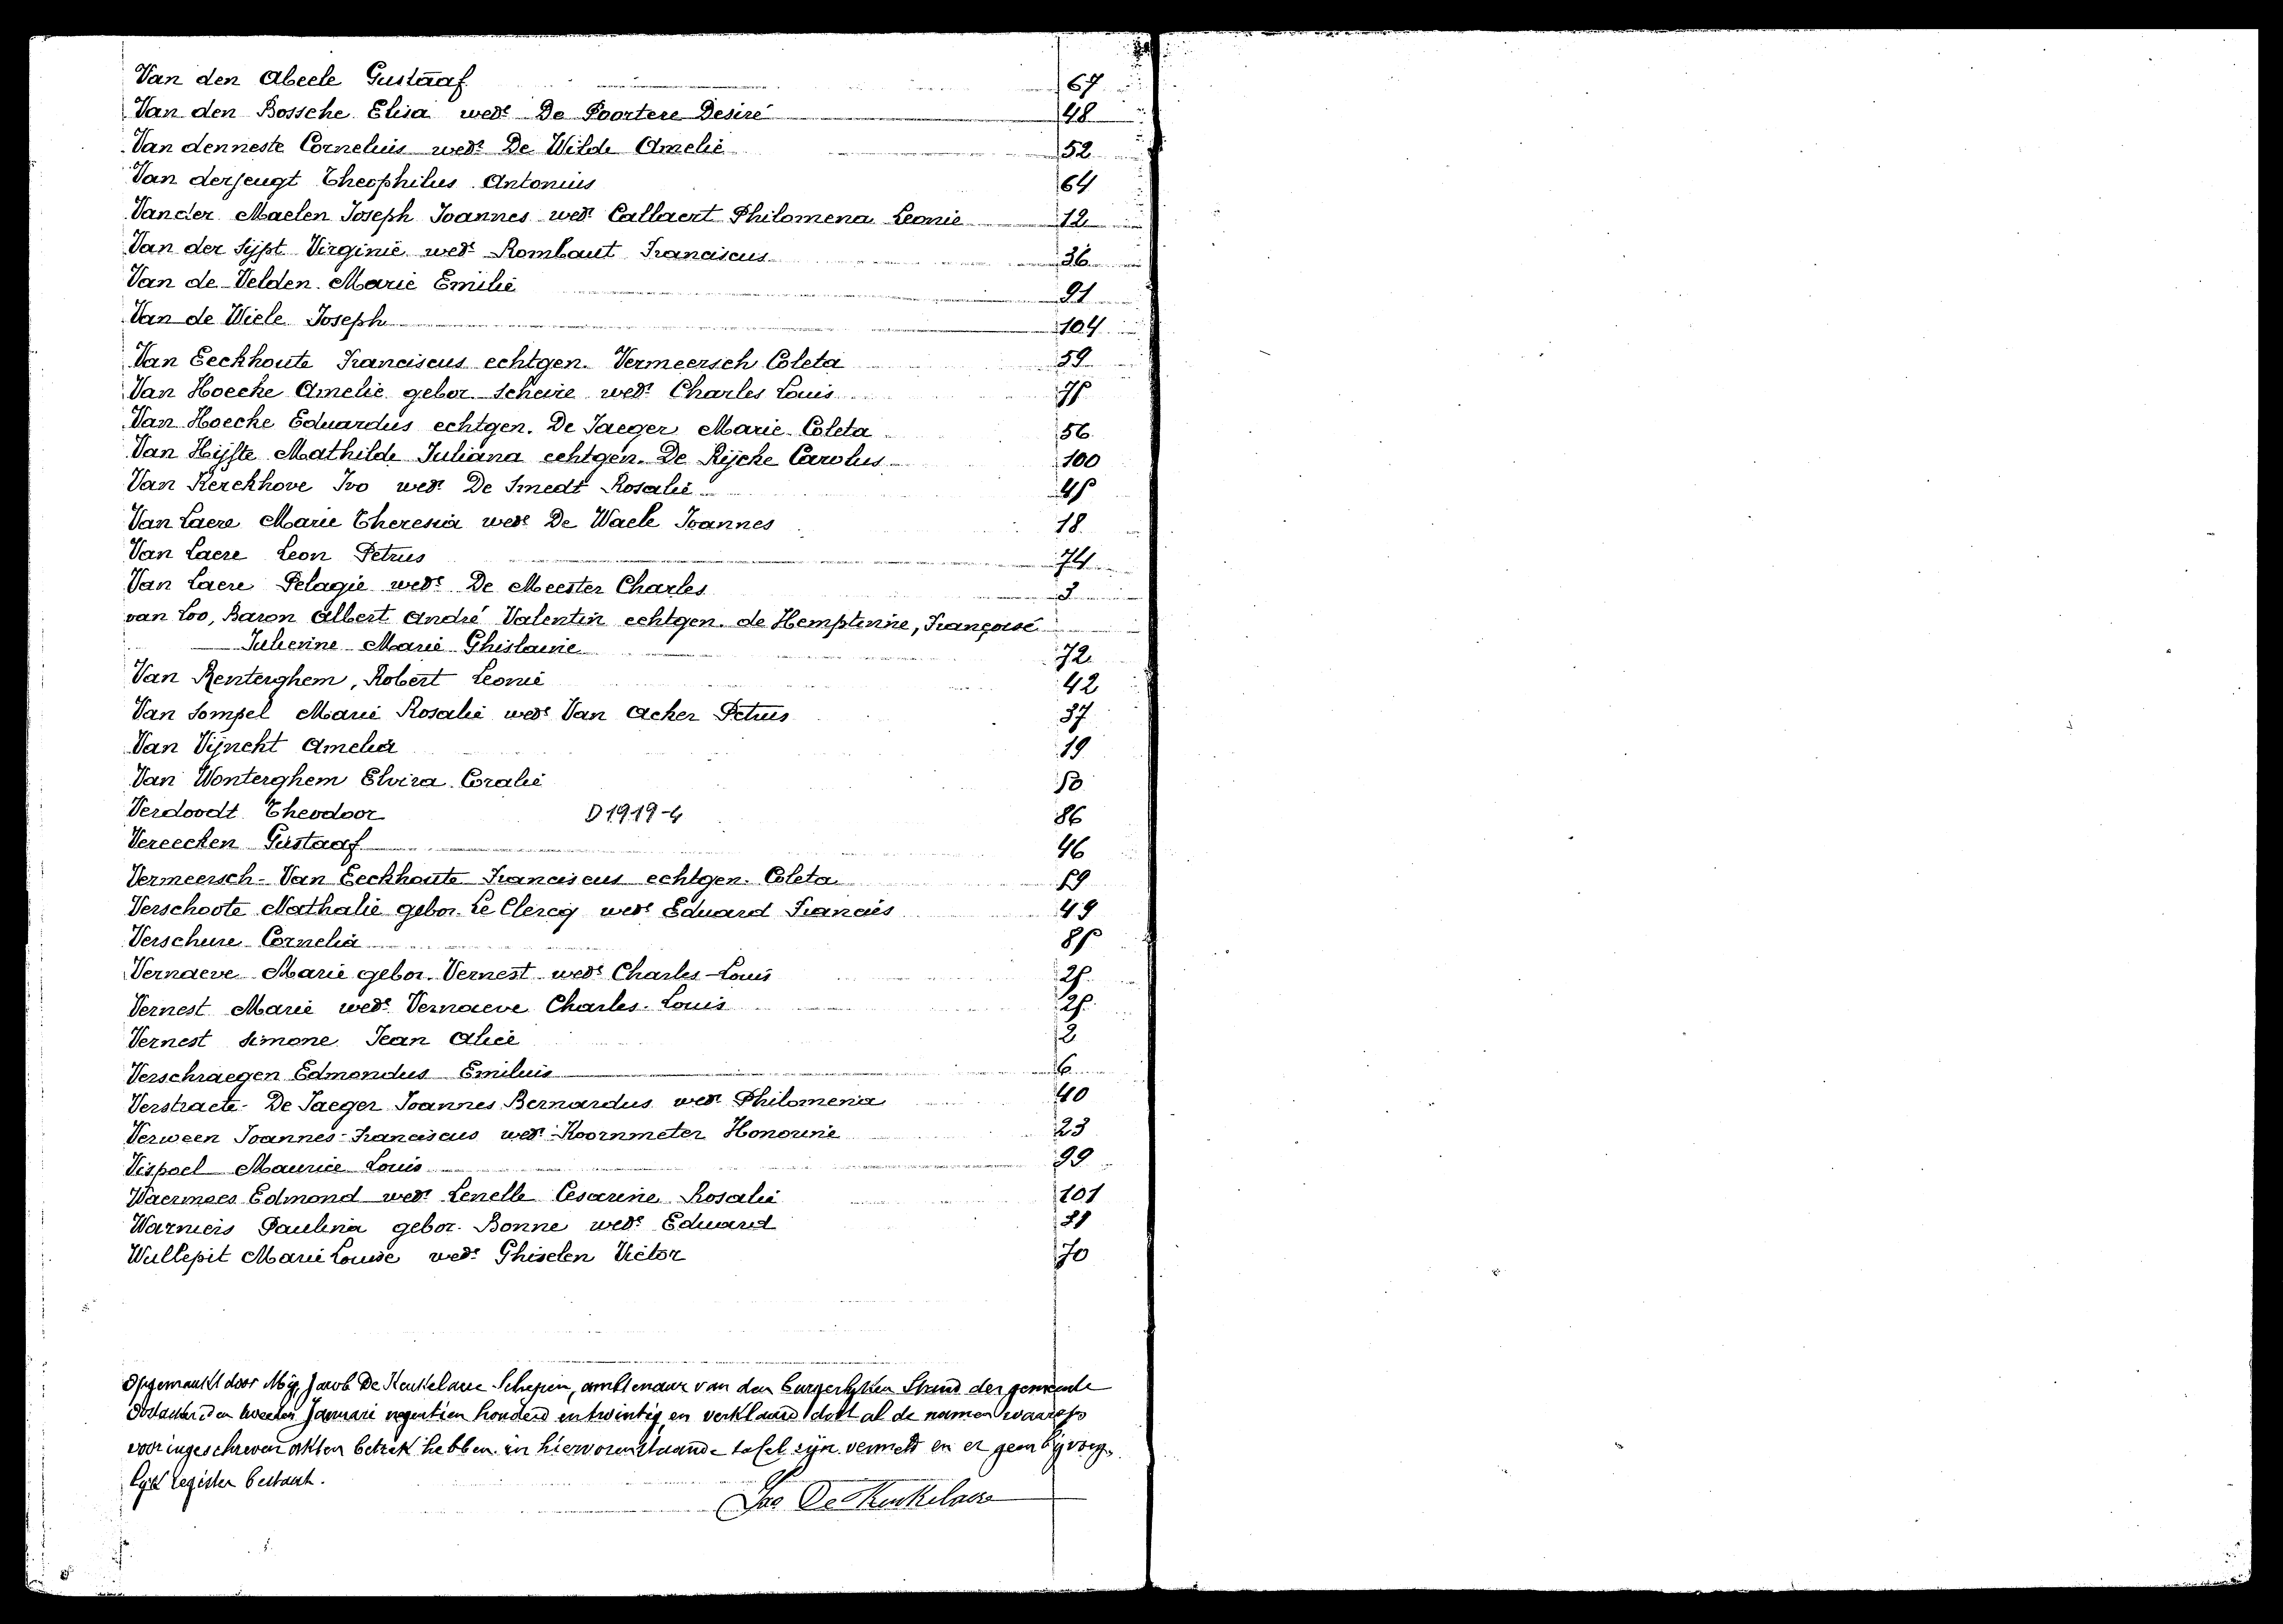 Van den Abeele Gustaaf 67
Van den Bossche Elisa wede De Poortere Desiré 48
Van denneste Cornelius wedr De Wilde Amelie 52
Van derjeugt Theophilus Antonius 64
Vander Maelen Joseph Joannes wedr Callaert Philomena Leonie 12
Van der Sijpt Virginie wede Rombaut Franciscus 36
Van de Velden Marie Emilie 91
Van de Wiele Joseph 104
Van Eeckhoute Franciscus echtgen. Vermeersch Coleta 59
Van Hoecke Amelie gebor. Scheire wede Charles Louis 75
Van Hoecke Eduardus echtgen. De Jaeger Marie Coleta 56
Van Hijfte Mathilde Juliana echtgen. De Rijcke Carolus 100
Van Kerckhove Ivo wedr De Smedt Rosalie 45
Van Laere Marie Theresia wede De Waele Joannes 18
Van Laere Leon Petrus 74
Van Laere Pelagie wede De Meester Charles 3
van Loo, Baron Albert André Valentin echtgen. de Hemptinne, Françoise
Julienne Marie Ghislaine 72
Van Renterghem, Robert Leonie 42
Van Sompel Marie Rosalie wede Van Acker Petrus 37
Van Vijncht Amelia 19
Van Wonterghem Elvira Coralie 50
Verdoodt Theodoor D1919-4 86
Vereecken Gustaaf 46
Vermeersch - Van Eeckhoute Franciscus echtgen. Coleta 59
Verschoote Nathalie gebor. Le Clercq wede Eduard Francies 49
Verschure Cornelia 85
Vernaeve Marie gebor. Vernest wede Charles-Louis 25
Vernest Marie wede Vernaeve Charles-Louis 25
Vernest Simone Jean Alice 2
Verschraegen Edmondus Emilius 6
Verstraete - De Jaeger Joannes Bernardus wedr Philomena 40
Verween Joannes-Franciscus wedr Koornmeter Honorine 23
Vispoel Maurice Louis 99
Waermoes Edmond wedr Lenelle Cesarine Rosalie 101
Warnieis Paulina gebor. Bonne wede Eduard
Wullepit Marie Louise wede Ghiselen Victor 70
Opgemaakt door Mij, Jacob De Keukelaere Schepen, ambtenaar van den burgerlijken Stand der gemeente
Oostacker den tweeden Januari negentien honderd en twintig, en verklaard dat al de namen waarop
voor ingeschreven akten betrek hebben in hiervorenstaande tafel zijn vermeld en er geen bijvoeg-
lijk register bestaat.
Jac De Keukelaere